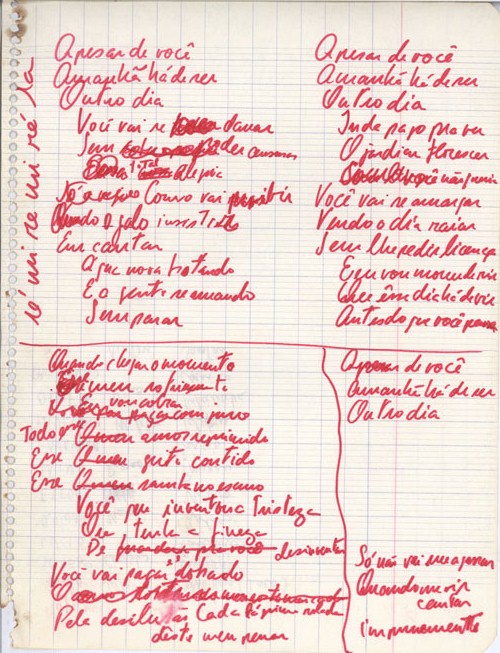 lá mi re mi ré la
Apesar de você
Amanhã há de ser
Outro dia
Você vai se danar
Sem poder censurar
alegria
Couro vai
Quando o galo insistir
Em cantar
Agua nova brotando
E a gente se amando
Sem parar
Apesar de você
Amanhã há de ser
Outro dia
Inda pago pra ver
O jardim florescer
você não queria
Você vai se amargar
Vendo o dia raiar
Sem lhe pedir licença
E eu vou morrer de rir
Que êsse dia há de vir
Antes do que você pensa
Quando chegar o momento
meu sofrimento
Vou cobrar com juro
Todo amor reprimido
Esse grito contido
Esse samba no escuro
Você que inventou a tristeza
Ora tenha a fineza
De desinventar
Você vai pagar dobrado
Pela desilusão Cada lágrima rolada
dêste meu penar
Apesar de você
Amanhã há de ser
Outro dia
Só não vai me
Quando me vir
cantar
impunemente